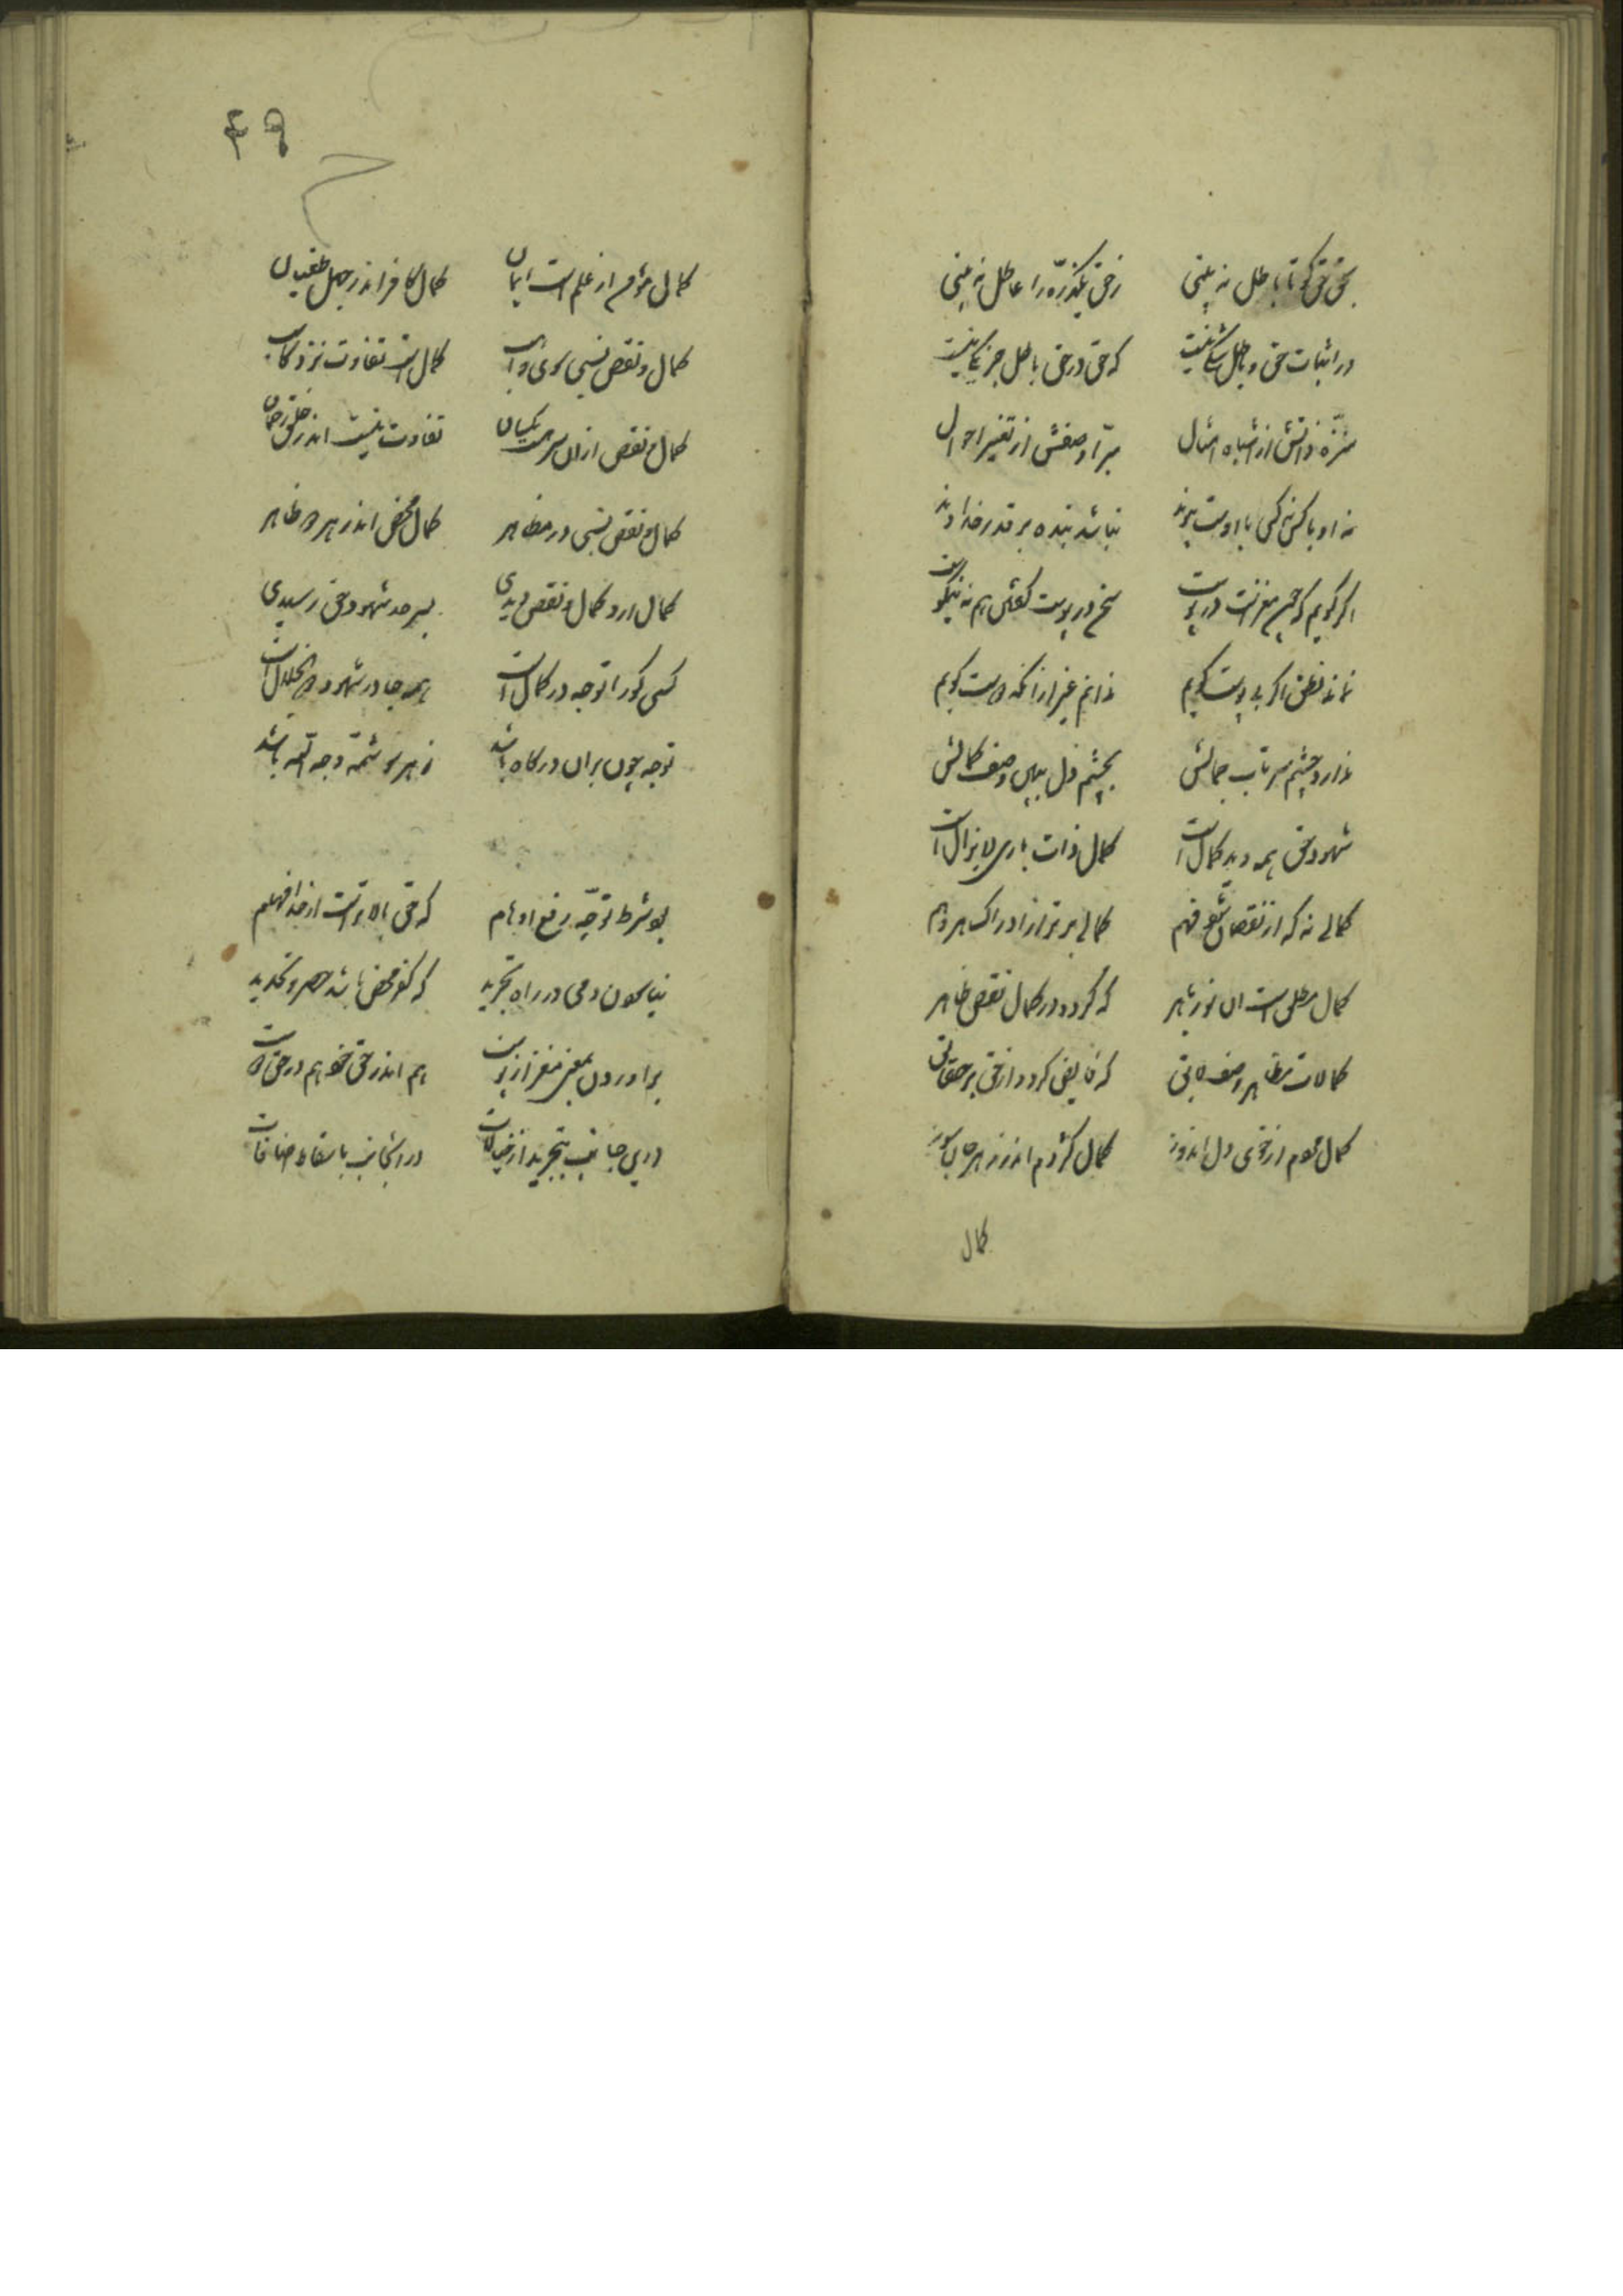 بحق حق کو تا باطل نه بینی ز حق یکذره را عاطل نه بینی
در اثبات حق و باطل شکی نیست که حق در حق باطل جز یکی نیست
منزه ذاتش از اشباه امثال مبرّا وصفش از تغییر احوال
نه او با کس نه کس با اوست پیوند نباشد بنده بر قدر خداوند
اگر گویم که چون مغزست در پوست سخن در پوست گفتن هم نه نیکوست
نماند نطق اگر بی پوست گویم ندانم غیر ازانکه اوست گویم
ندارد چشم سر تاب جمالش بچشم دل ببین وصف کمالش
شهود حق همه دید کمال است کمال ذات باری لایزال است
کمالی نه که از نقصان شود فهم کمالی برتر از ادراک هر وهم
کمال مطلق است آن نور باهر که گردد در کمال نقص ظاهر
کمالات مظاهر وصف لایق که فایض گردد از حق بر حقایق
کمال مردم از خوی دل اندوز کمال کژدم اندر زهر جان سوز
کمال
۴۹
کمال مؤمن از علم است ایمان کمال کافر اندر جهل طغیان
کمال و نقص نسبی سوی کمال است تفاوت نزد
کمال و نقص ازان سر هست یکسان تفاوت نیست اندر خلق رحمان
کمال و نقص نسبی در مظاهر کمال محض اندر هر دو ظاهر
کمال ار در کمال و نقص دیدی بسرحد شهود حق رسیدی
کسی کو را توجه در کمال است همه جا در شهود ذوالجلال است
توجه چون بران درگاه باشد ز هر سو ثمّ وجه الله باشد
بود شرط توجّه رفع اوهام که حق بالاترست از حد افهام
دمی در راه تجرید که کفر محض باشد حصر و تحدید
برادر دل مغز از پوست هم اندر حق هم در حق
درین جانب بتجرید از خیالات دران جانب باسقاط اضافات